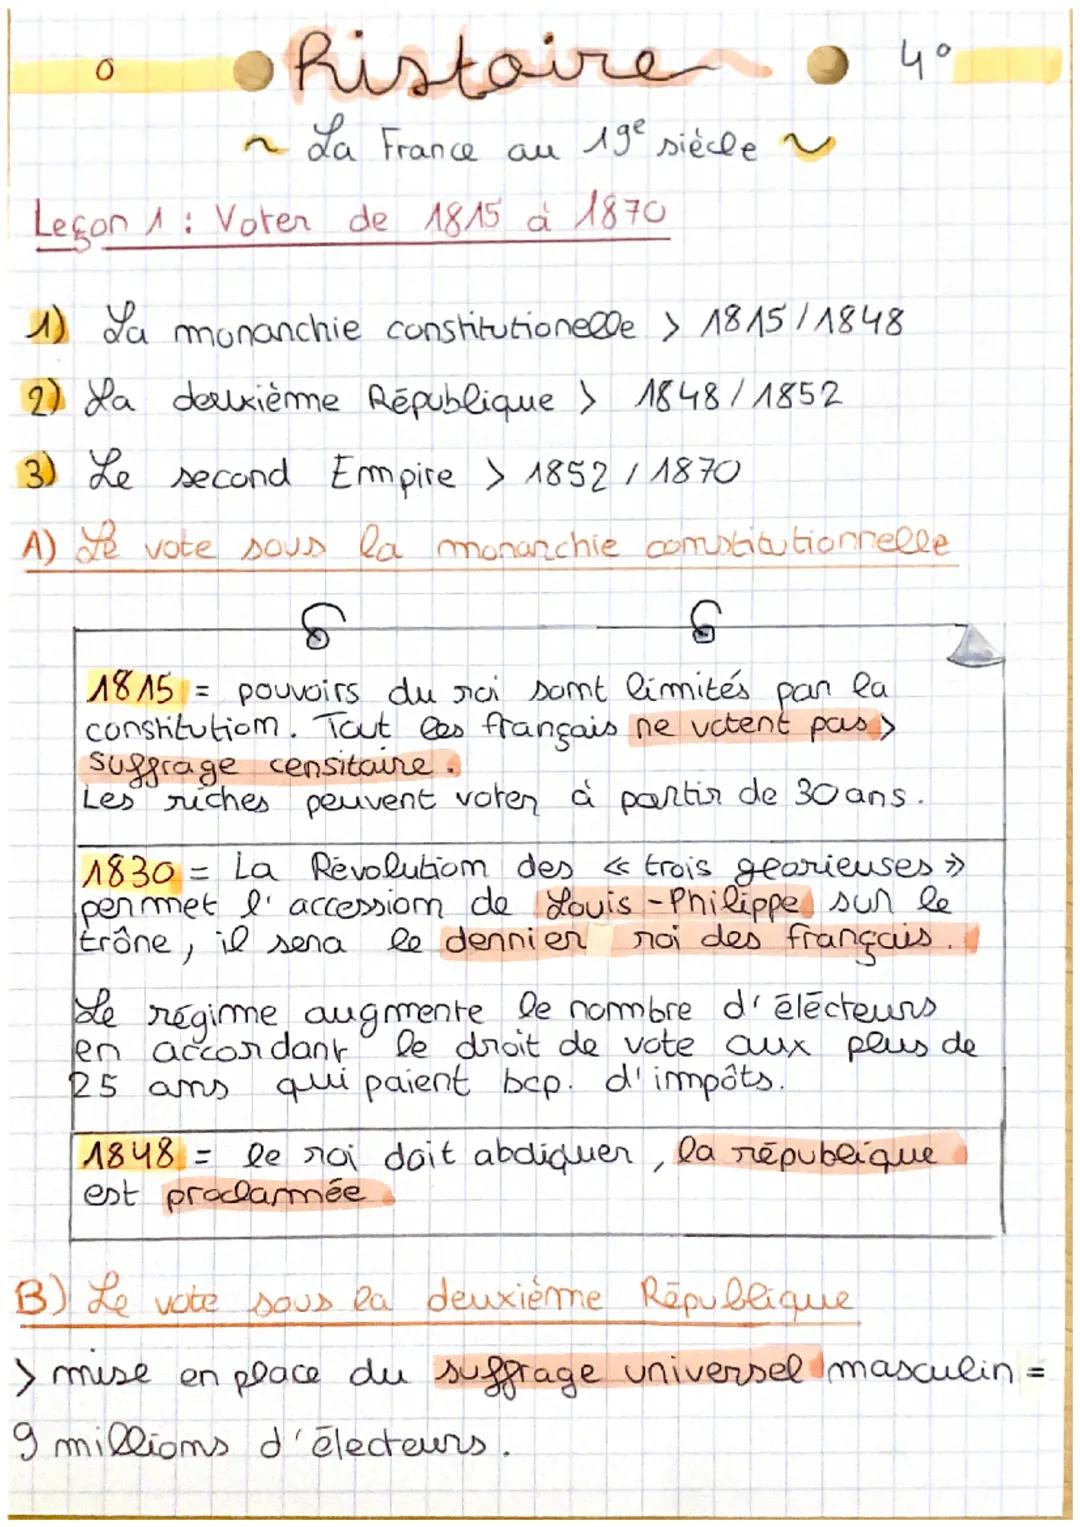 histoire 4°
~ La France au 19e siècle ~
Leçon 1 : Voter de 1815 à 1870
1) La monarchie constitutionelle > 1815 / 1848
2) La deuxième République > 1848 / 1852
3) Le second Empire > 1852 / 1870
A) Le vote sous la monarchie constitutionnelle
1815 = pouvoirs du roi sont limités par la
constitution. Tout les français ne votent pas >
suffrage censitaire.
Les riches peuvent voter à partir de 30 ans.
1830 = La Révolution des « trois glorieuses »
permet l'accession de Louis-Philippe sur le
trône, il sera le dernier roi des français.
Le régime augmente le nombre d'élécteurs
en accordant le droit de vote aux plus de
25 ans qui paient bcp. d'impôts.
1848 = le roi doit abdiquer, la république
est proclamée
B) Le vote sous la deuxième République
> mise en place du suffrage universel masculin =
9 millions d'électeurs.